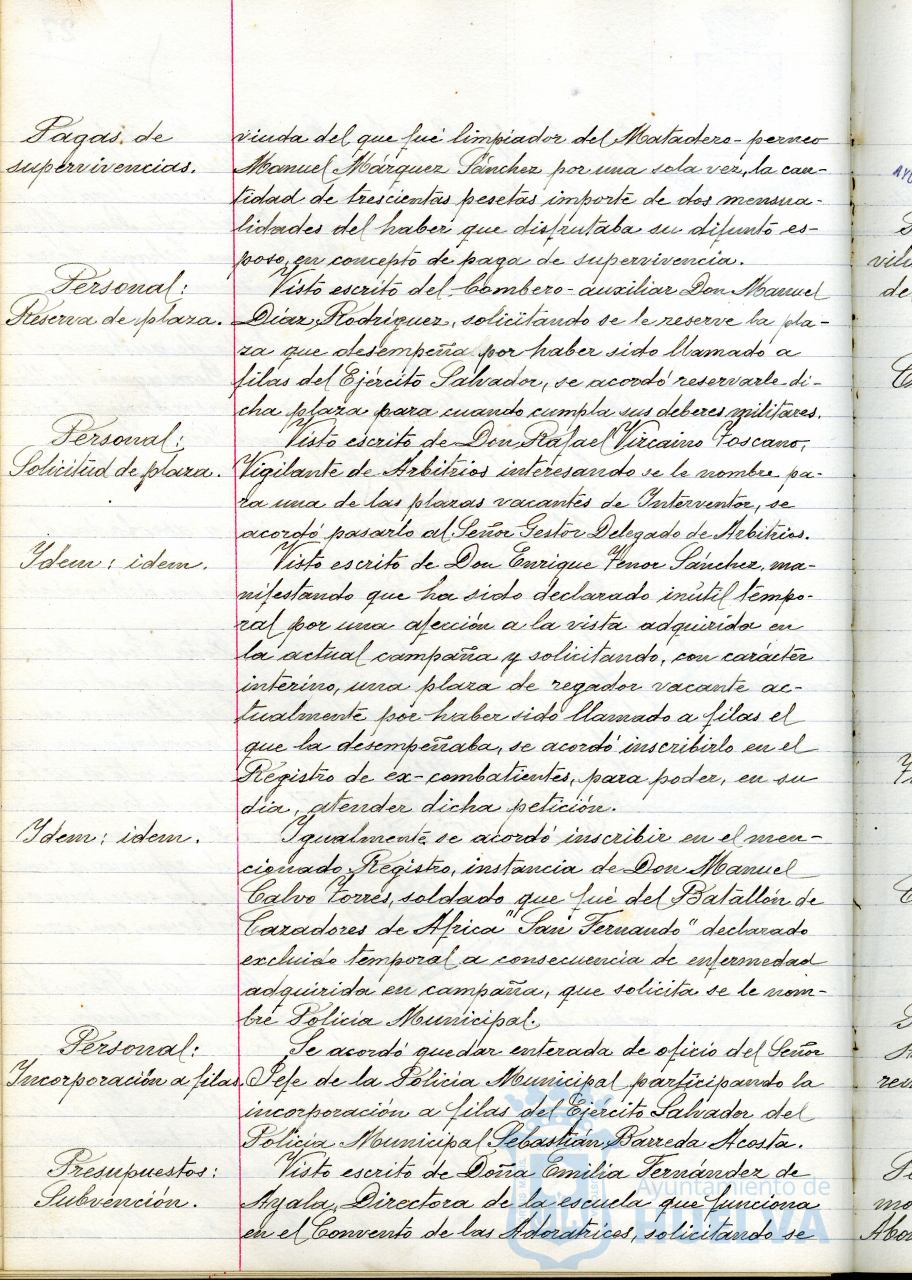 Pagas de
supervivencias.
viuda del que fué limpiador del Matadero-perneo
Manuel Márquez Sánchez por una sola vez, la can-
tidad de trescientas pesetas importe de dos mensua-
lidades del haber que disfrutaba su difunto es-
poso, en concepto de paga de supervivencia.
Personal:
Reserva de plaza.
Visto escrito del Bombero-auxiliar Don Manuel
Díaz Rodríguez, solicitando se le reserve la pla-
za que desempeña por haber sido llamado a
filas del Ejército Salvador, se acordó reservarle di-
cha plaza para cuando cumpla sus deberes militares.
Personal:
Solicitud de plaza.
Visto escrito de Don Rafael Vizcaino Toscano,
Vigilante de Arbitrios interesando se le nombre pa-
ra una de las plazas vacantes de Interventor, se
acordó pasarlo al Señor Gestor Delegado de Arbitrios.
Idem: idem.
Visto escrito de Don Enrique Tenor Sánchez, ma-
nifestando que ha sido declarado inútil tempo-
ral por una afección a la vista adquirida en
la actual campaña y solicitando, con carácter
interino, una plaza de regador vacante ac-
tualmente por haber sido llamado a filas el
que la desempeñaba, se acordó inscribirlo en el
Registro de ex-combatientes, para poder, en su
día, atender dicha petición.
Idem: idem.
Igualmente se acordó inscribir en el men-
cionado Registro, instancia de Don Manuel
Calvo Torres, soldado que fué del Batallón de
Cazadores de Africa "San Fernando" declarado
excluido temporal a consecuencia de enfermedad
adquirida en campaña, que solicita se le nom-
bre Policía Municipal.
Personal:
Incorporación a filas.
Se acordó quedar enterada de oficio del Señor
Jefe de la Policía Municipal participando la
incorporación a filas del Ejército Salvador del
Policía Municipal Sebastián Barreda Acosta.
Presupuestos:
Subvención.
Visto escrito de Doña Emilia Fernández de
Ayala, Directora de la escuela que funciona
en el Convento de las Adoratrices, solicitando se
Ayuntamiento de
HUELVA